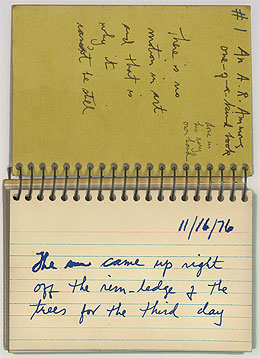 # 1 An A. R. Ammons
one-of-a-kind book
done in
his very
own hand
There is no
motion in art
and that is
why it
cannot be still
11/16/76
The sun came up right
off the rim-ledge of the
trees for the third day